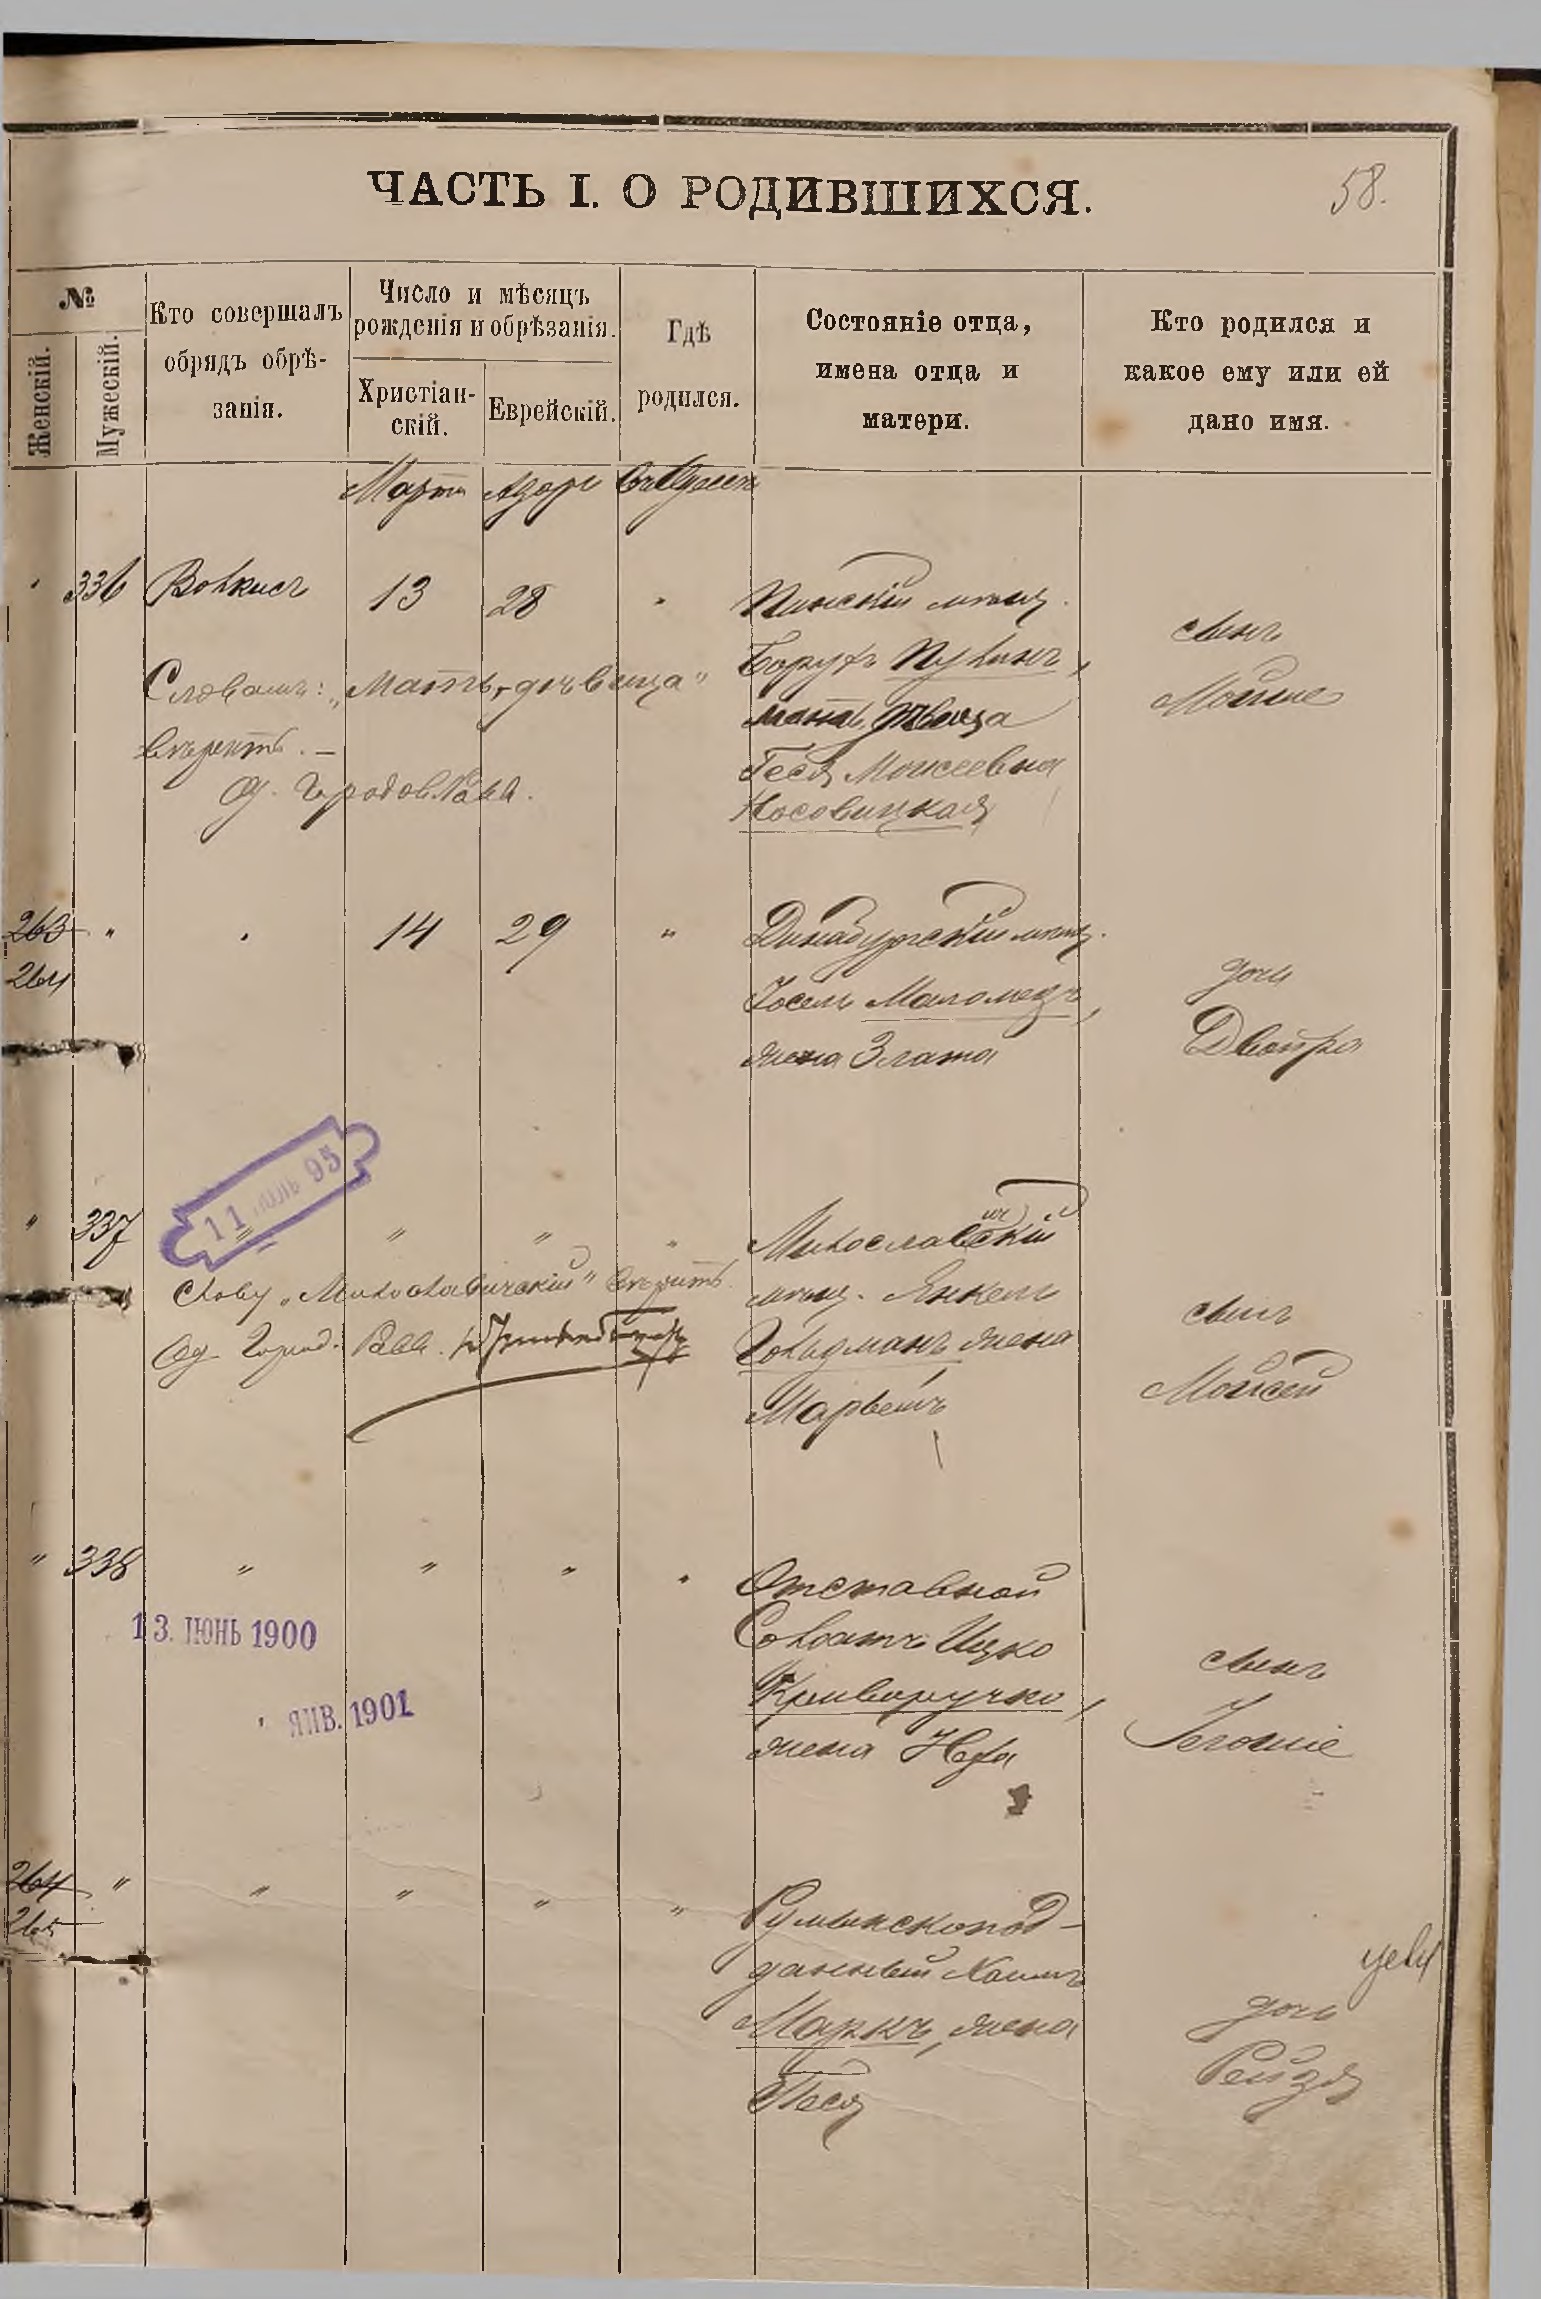 ЧАСТЬ I. О РОДИВШИХСЯ.
58.
№
Женскій.
Мужескій.
Кто совершалъ
обрядъ обрѣ-
занія.
Число и мѣсяцъ
рожденія и обрѣзанія.
Христіан-
скій.
Еврейскій.
Гдѣ
родился.
Состояніе отца,
имена отца и
матери.
Кто родился и
какое ему или ей
дано имя.
Мартъ Адаръ въ Одессѣ
" 336 Волкисъ 13 28 " Пинскій мѣщ.
Борухъ Пулинъ,
мать дѣвица
Геся Моисеевна
Носовицкая
сынъ
Мойше
Словамъ: "мать, дѣвица"
вѣрить. —
Од. Городов. Равв.
263 " " 14 29 " Динабургскій мѣщ.
264
Іосель Маломедъ,
жена Злата
дочь
Двойра
11 ІЮЛЬ 95
" 337 " " " " Милославскій
ич
мѣщ. Янкель
Гольдманъ жена
Марьемъ
сынъ
Мойсей
Слову "Милославичскій" вѣрить.
Од. Город. Равв.
" 338 " " " " Отставной
Солдатъ Ицко
Криворучко,
жена Неха
сынъ
Іегошіе
13. ІЮНЬ 1900
ЯНВ. 1901
264 " " " " " Румынскопод-
265
данный Хаимъ
Маркъ, жена
Песя
дочь
Рейзя